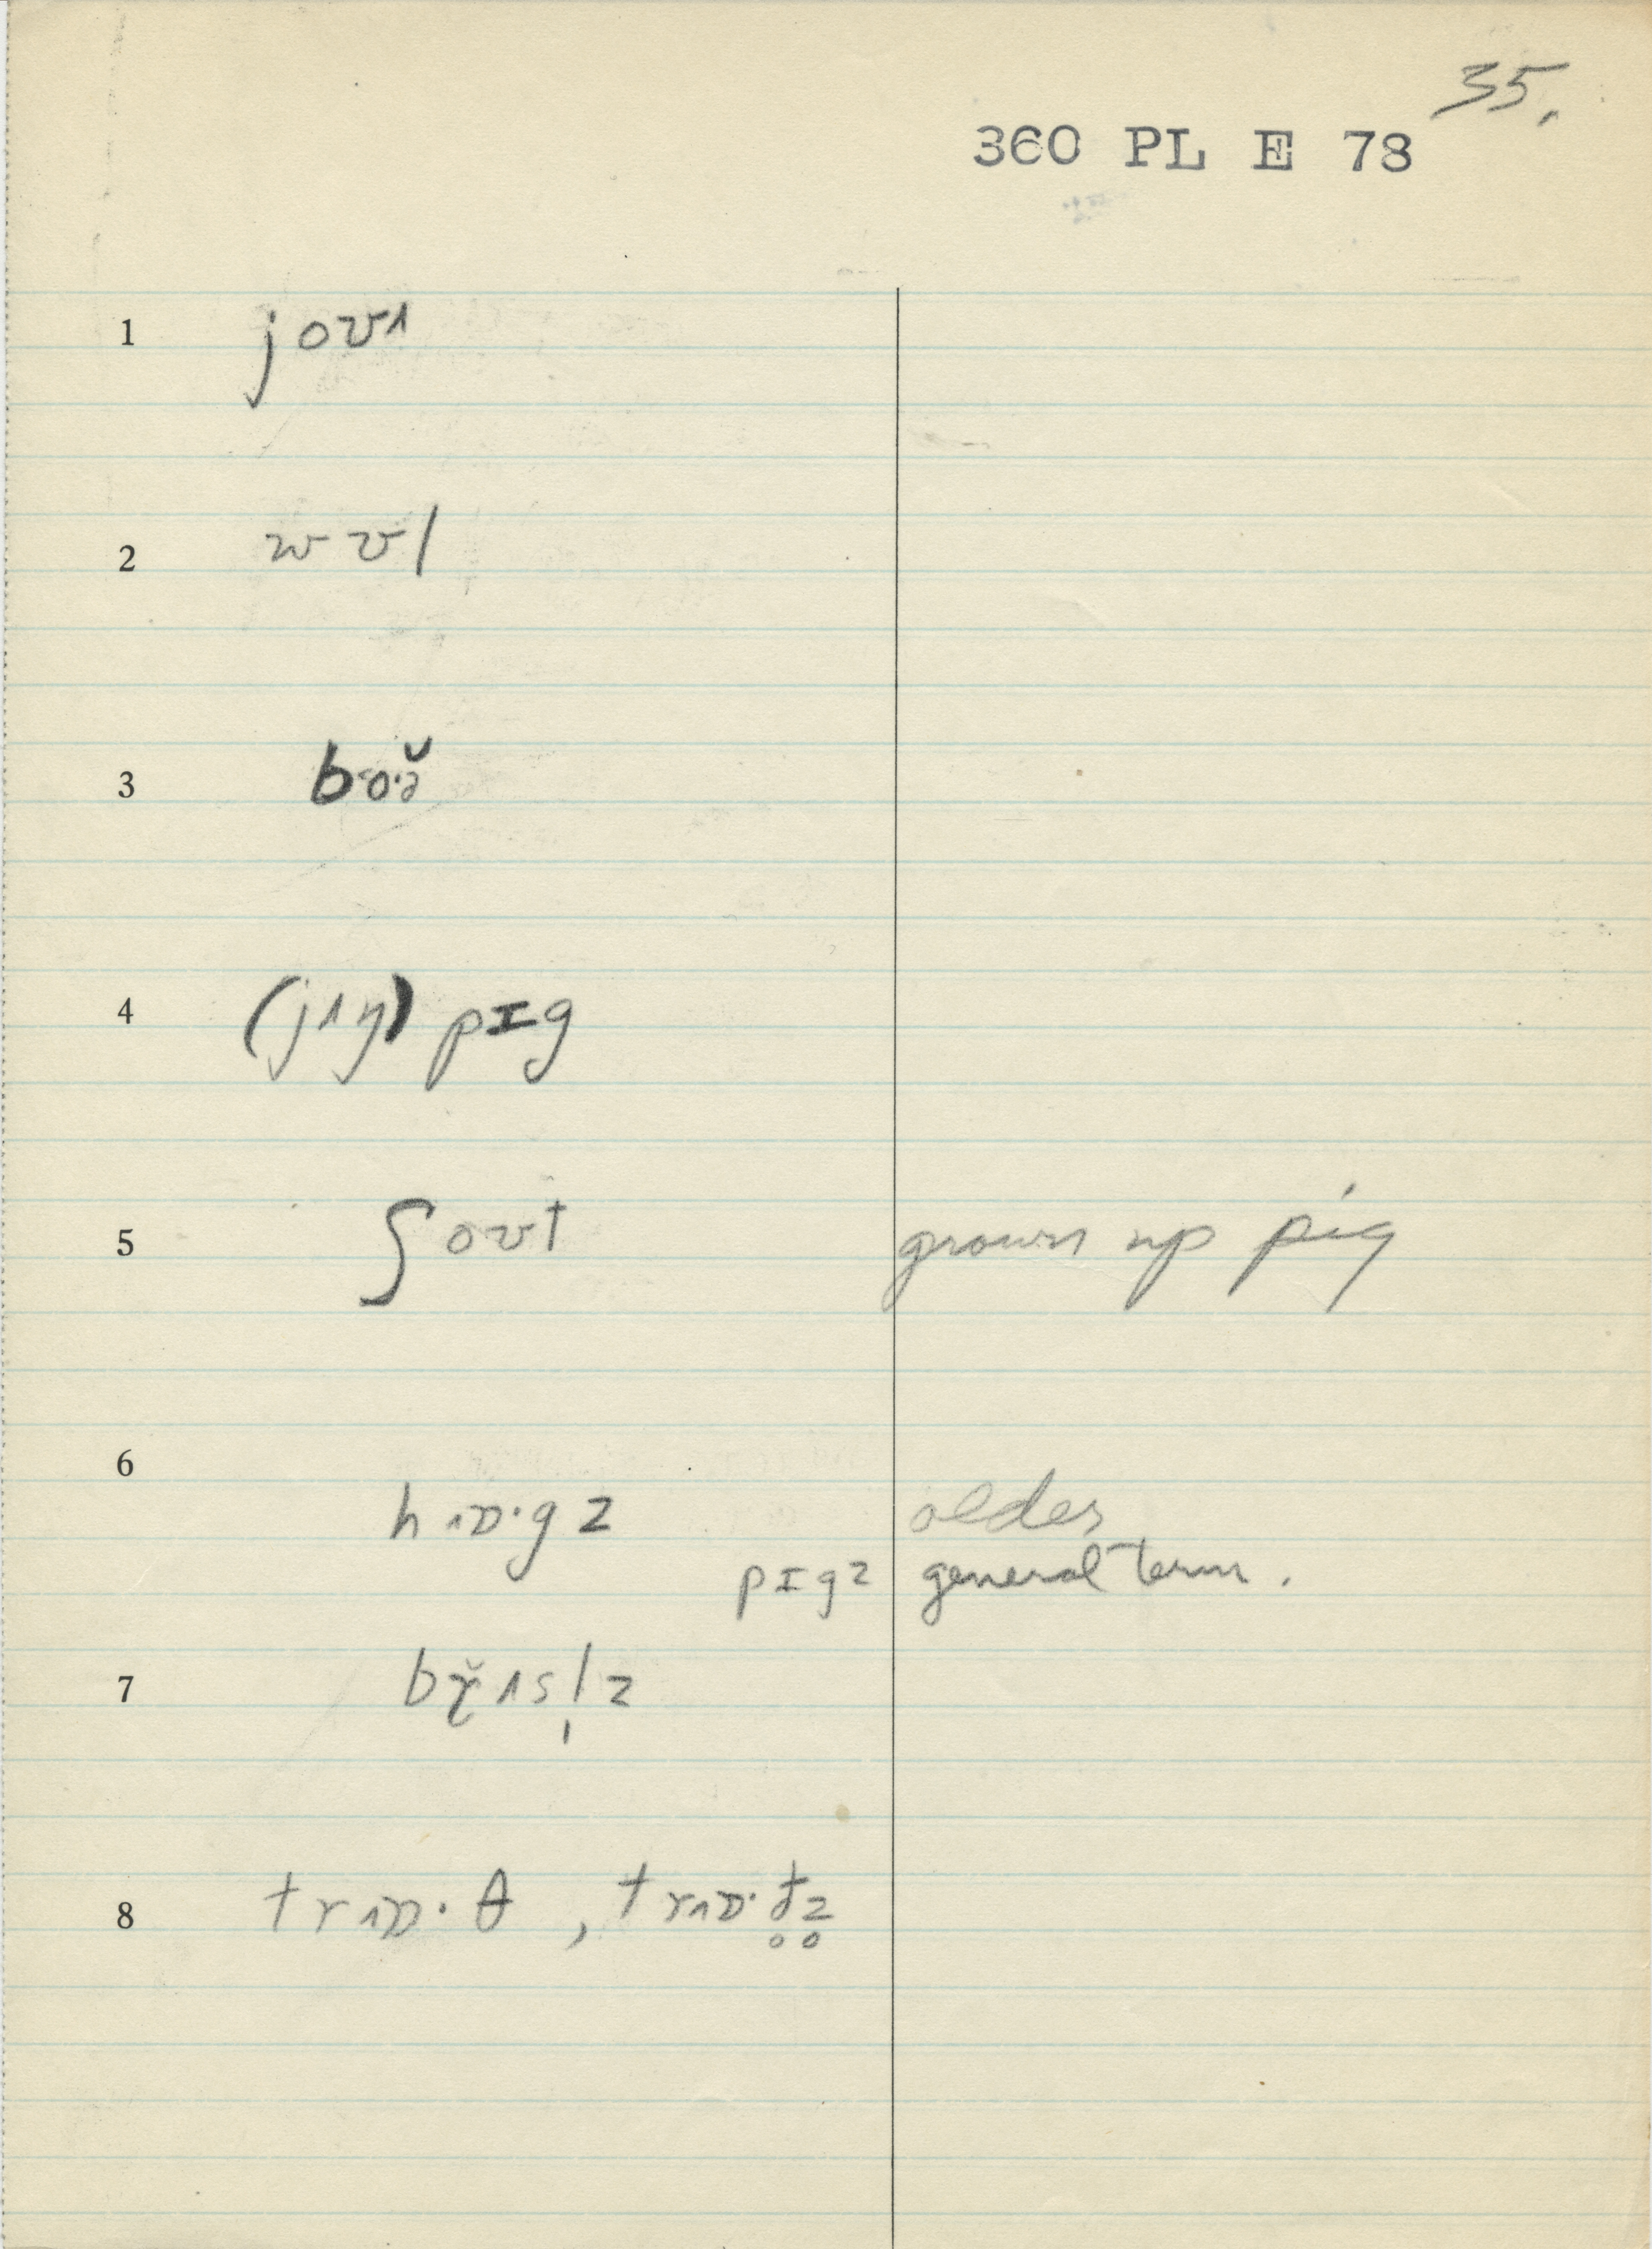 35.
360 PL E 78
1 joʊ1
2 wʊl
3 bo·ə̆
4 (jʌŋ) pɪg
5 ʃoʊt grown up pig
6
hɒ·gz older
pɪgz general term.
7 br̥̆ʌsl̩z
8 trɒ·θ , trɒ·ð̥z̥